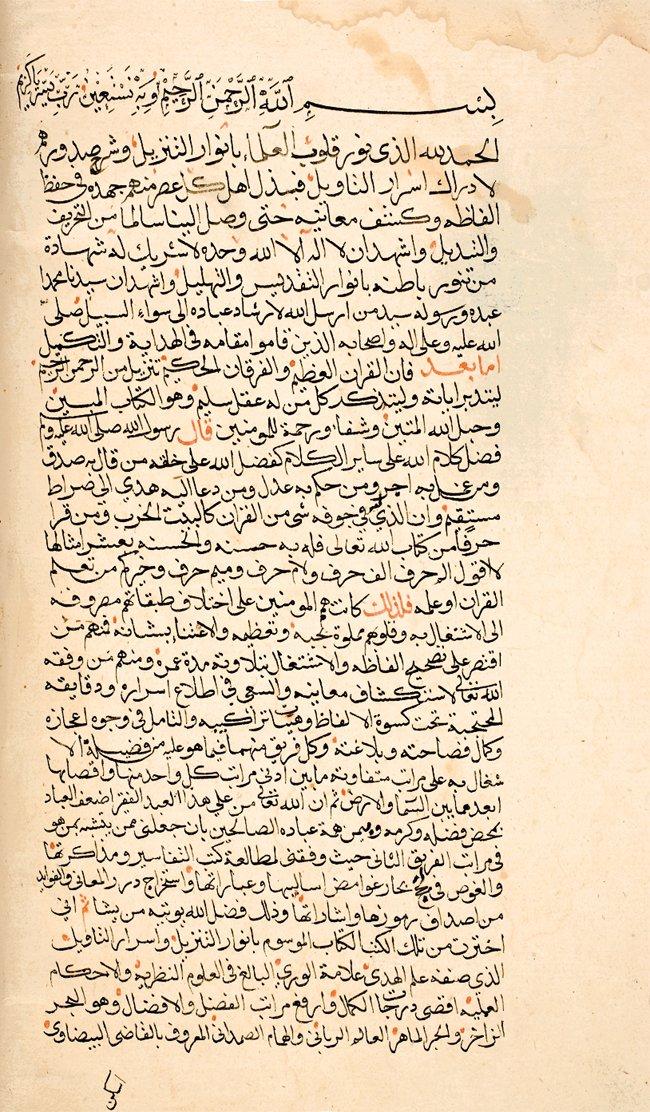 بسم الله الرحمن الرحيم وبه نستعين رب يسر يا كريم
الحمد لله الذي نور قلوب العلماء بانوار التنزيل وشرح صدورهم
لادراك اسرار التاويل فبذل اهل كل عصر منهم جهده في حفظ
الفاظه وكشف معانيه حتى وصل الينا سالما من التحريف
والتبديل واشهد ان لا اله الا الله وحده لا شريك له شهادة
من تنور باطنه بانوار التقديس والتهليل واشهد ان سيدنا محمدا
عبده ورسوله سيد من ارسل الله لارشاد عباده الى سواء السبيل صلى
الله عليه وعلى اله واصحابه الذين قاموا مقامه في الهداية والتكميل
اما بعد فان القران العظيم والفرقان الحكيم تنزيل من الرحمن الرحيم
ليتدبر اياته وليتذكر كل من له عقل سليم وهو الكتاب المبين
وحبل الله المتين وشفا ورحمة للمومنين قال رسول الله صلى الله عليه وسلم
فضل كلام الله على ساير الكلام كفضل الله على خلقه من قال به صدق
ومن عمل به اجر ومن حكم به عدل ومن دعا اليه هدي الى صراط
مستقيم وان الذي ليس في جوفه شي من القران كالبيت الخرب ومن قرا
حرفا من كتاب الله تعالى فله به حسنه والحسنه بعشر امثالها
لا اقول الم حرف الف حرف ولام حرف وميم حرف وخيركم من تعلم
القران وعلمه فلذلك كانت همم المومنين على اختلاف طبقاتهم مصروفه
الى الاشتغال به وقلوبهم مملوة بمحبته وتعظيمه والاعتناء بشانه فمنهم من
اقتصر على تصحيح الفاظه والاشتغال بتلاوته مدة عمره ومنهم من وفقه
الله تعالى لاستكشاف معانيه والسعي في اطلاع اسراره ودقايقه
المحتجبة تحت كسوة الالفاظ وهيئات تراكيبه والتامل في وجوه اعجازه
وكمال فصاحته وبلاغته وكل فريق منهما فيما هو عليه من فضيلة الا
شتغال به على مراتب متفاوته ما بين ادنى مراتب كل واحد منها واقصاها
ابعد مما بين السما والارض ثم ان الله تعالى من على هذا العبد الفقير اضعف العباد
بمحض فضله وكرمه ويمن همة عباده الصالحين بان جعلني ممن يتشبه بمن هو
في مراتب الفريق الثاني حيث وفقني لمطالعة كتب التفاسير ومذاكرتها
والغوص في بحار غوامض اساليبها وعباراتها واستخراج درر المعاني والفوايد
من اصداف رموزها واشاراتها وذلك فضل الله يوتيه من يشا ثم اني
اخترت من تلك الكتب الكتاب الموسوم بانوار التنزيل واسرار التاويل
الذي صنفه علم الهدى علامة الورى البالغ في العلوم النظرية والاحكام
العملية اقصى درجات الكمال وارفع مراتب الفضل والافضال وهو البحر
الزاخر والحبر الماهر العالم الرباني والهمام الصمداني المعروف بالقاضي البيضاوي